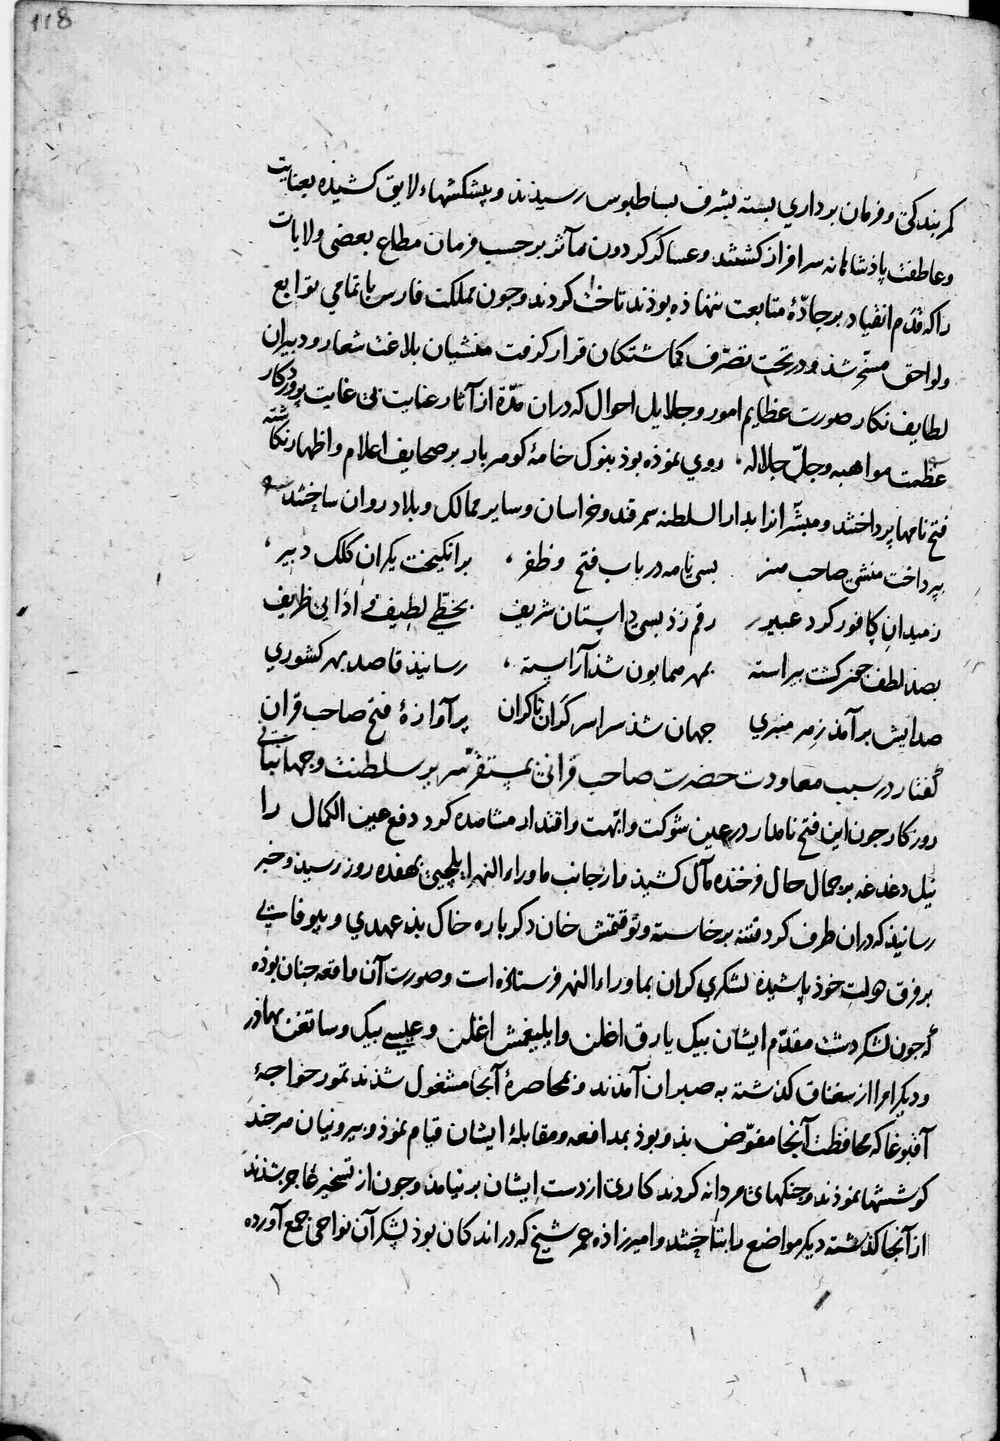 118
کمر بندکی و فرمان برداری بسته بشرف بساط بوس رسیذند و پیشکشهاء لایق کشیذه بعنایت
و عاطفت پاذشاهانه سرافراز کشتند و عساکر کردون مآثر برحسب فرمان مطاع بعضی ولایات
را که قدم انقیاد بر جادّهٔ متابعت ننهاذه بوذند تاخت کردند و جون مملکت فارس با تمامی توابع
و لواحق مسخّر شذ و در تحت تصرّف کماشتکان قرار کرفت منشیان بلاغت شعار و دبیران
لطایف نکار صورت عظایم امور و جلایل احوال که دران مدّة از آثار عنایت بی غایت پروردکار
عظمت مواهبه و جلّ جلاله روی نموذه بوذ بنوک خامهٔ کوهربار بر صحایف اعلام و اظهار نکاشته
فتح نامها پرداختند و مبشّرانرا بدار السلطنه سمرقند و خراسان و سایر ممالک و بلاد روان ساختند
بپرداخت منشی صاحب هنر بسی نامه در باب فتح و ظفر برانکیخت یکران کلک دبیر
زمیدان کافور کرد عبیر رقم زذ بسی داستان شریف بخطّی لطیف و اداایی ظریف
بصذ لطف جون کشت پیراسته بمهر همایون شذ آراسته رسانیذ قاصد بهر کشوری
صدایش برآمذ زهر منبری جهان شذ سراسر کران تا کران پر آوازهٔ فتح صاحب قران
گفتار در سبب معاودت حضرت صاحب قرانی بمستقرّ سریر سلطنت و جهانبانی
روزکار جون این فتح نامدار در عین شوکت و ابّهت و اقتدار مشاهده کرد دفع عین الکمال را
نیل دغدغه بر جمال حال فرخنده مآل کشیذ و از جانب ماوراء النهر ایلچیی بهفده روز رسیذ و خبر
رسانیذ که دران طرف کرد فتنه برخاسته و توقتمش خان دکرباره خاک بذعهدی و بیوفائی
بر فرق دولت خوذ پاشیذه لشکری کران بماوراء النهر فرستاذه است و صورت آن واقعه جنان بوذه
که جون لشکر دشت مقدّم ایشان بیک یارق اغلن و ایلیغمش اغلن و عیسی بیک و ساتغن بهاذر
و دیکر امرا از سغناق کذشته به صبران آمدند و بمحاصرهٔ آنجا مشغول شذند تمور خواجهٔ
آقبوغا که محافظت آنجا مفوّض بذو بوذ بمدافعه و مقابلهٔ ایشان قیام نموذ و بیرونیان هرجند
کوششها نموذند و جنکهای مردانه کردند کاری از دست ایشان برنیامذ و جون از تسخیر عاجز شذند
از آنجا کذشته دیکر مواضع را بتاختند و امیرزاذه عمر شیخ که در اندکان بوذ لشکر آن نواحی جمع آورده